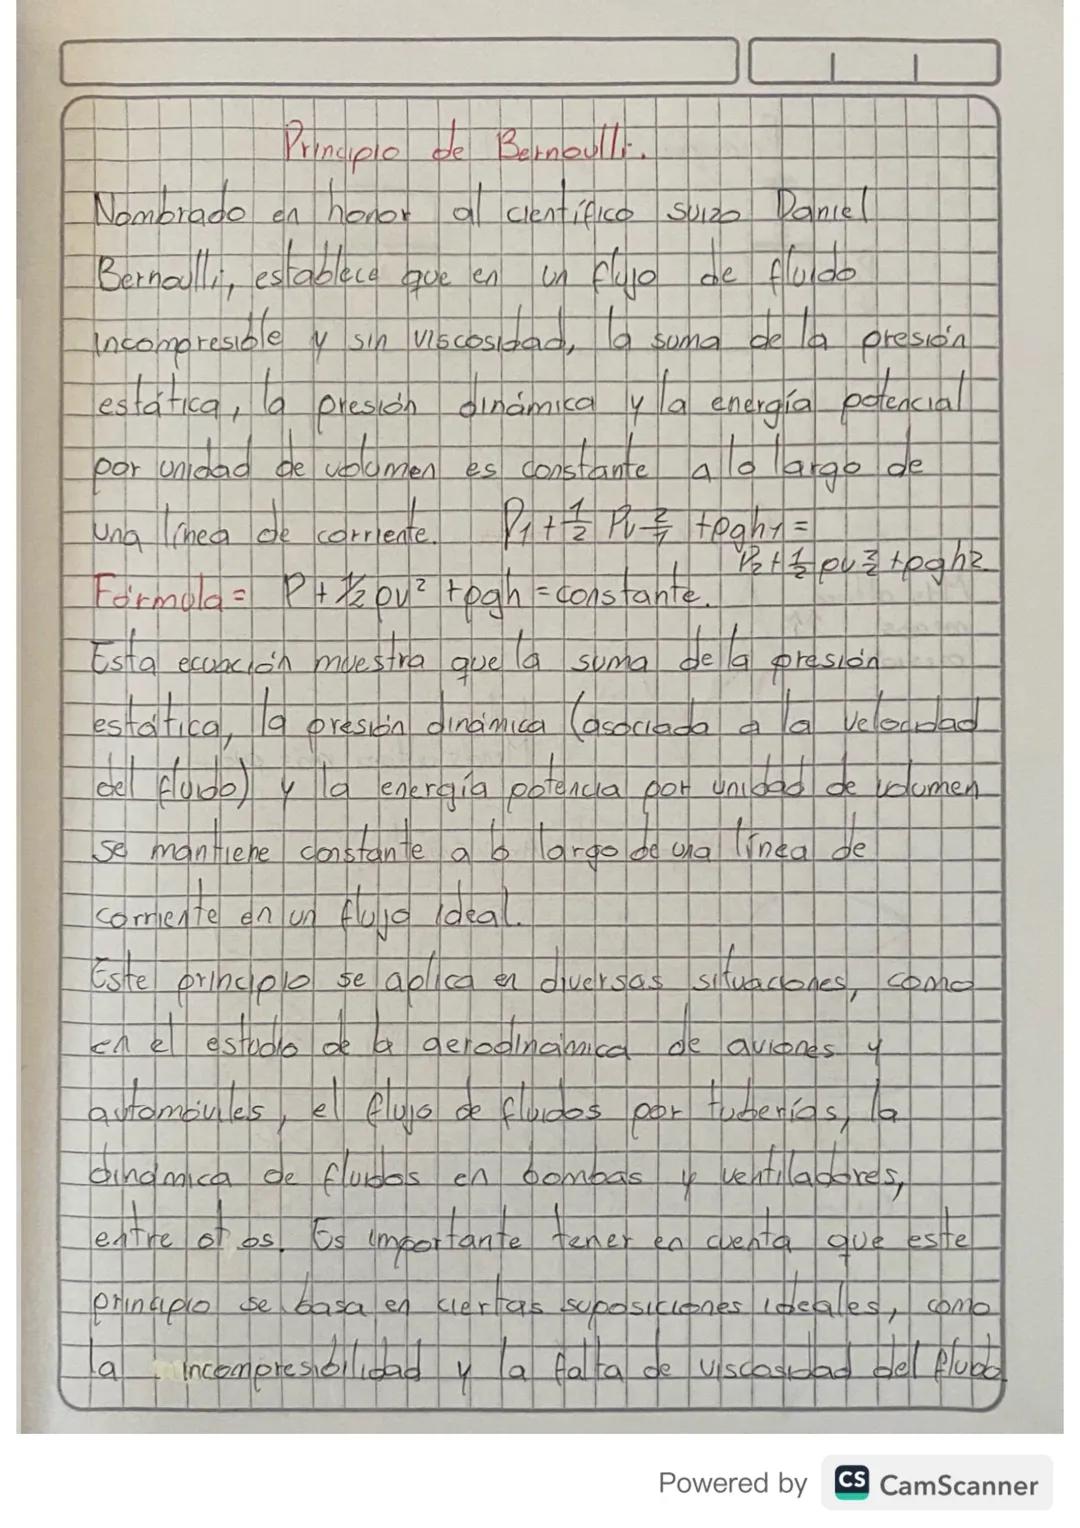 Principio de Bernoulli.
Nombrado en honor al científico suizo Daniel
Bernoulli, establece que en un flujo de fluido
incompresible y sin viscosidad, la suma de la presión
estática, la presión dinámica y la energía potencial
por unidad de volumen es constante a lo largo de
una línea de corriente. P₁ + 1/2 Pv²₁ + ρgh₁ =
P₂ + 1/2 ρv²₂ + ρgh₂
Formula = P + 1/2 ρv² + ρgh = constante.
Esta ecuación muestra que la suma de la presión
estática, la presión dinámica (asociada a la velocidad
del fluido) y la energía potencia por unidad de volumen
se mantiene constante a lo largo de una línea de
corriente en un flujo ideal.
Este principio se aplica en diversas situaciones, como
en el estudio de la aerodinámica de aviones y
automóviles, el flujo de fluidos por tuberías, la
dinámica de fluidos en bombas y ventiladores,
entre otros. Es importante tener en cuenta que este
principio se basa en ciertas suposiciones ideales, como
la incompresibilidad y la falta de viscosidad del fluido
Powered by CS CamScanner